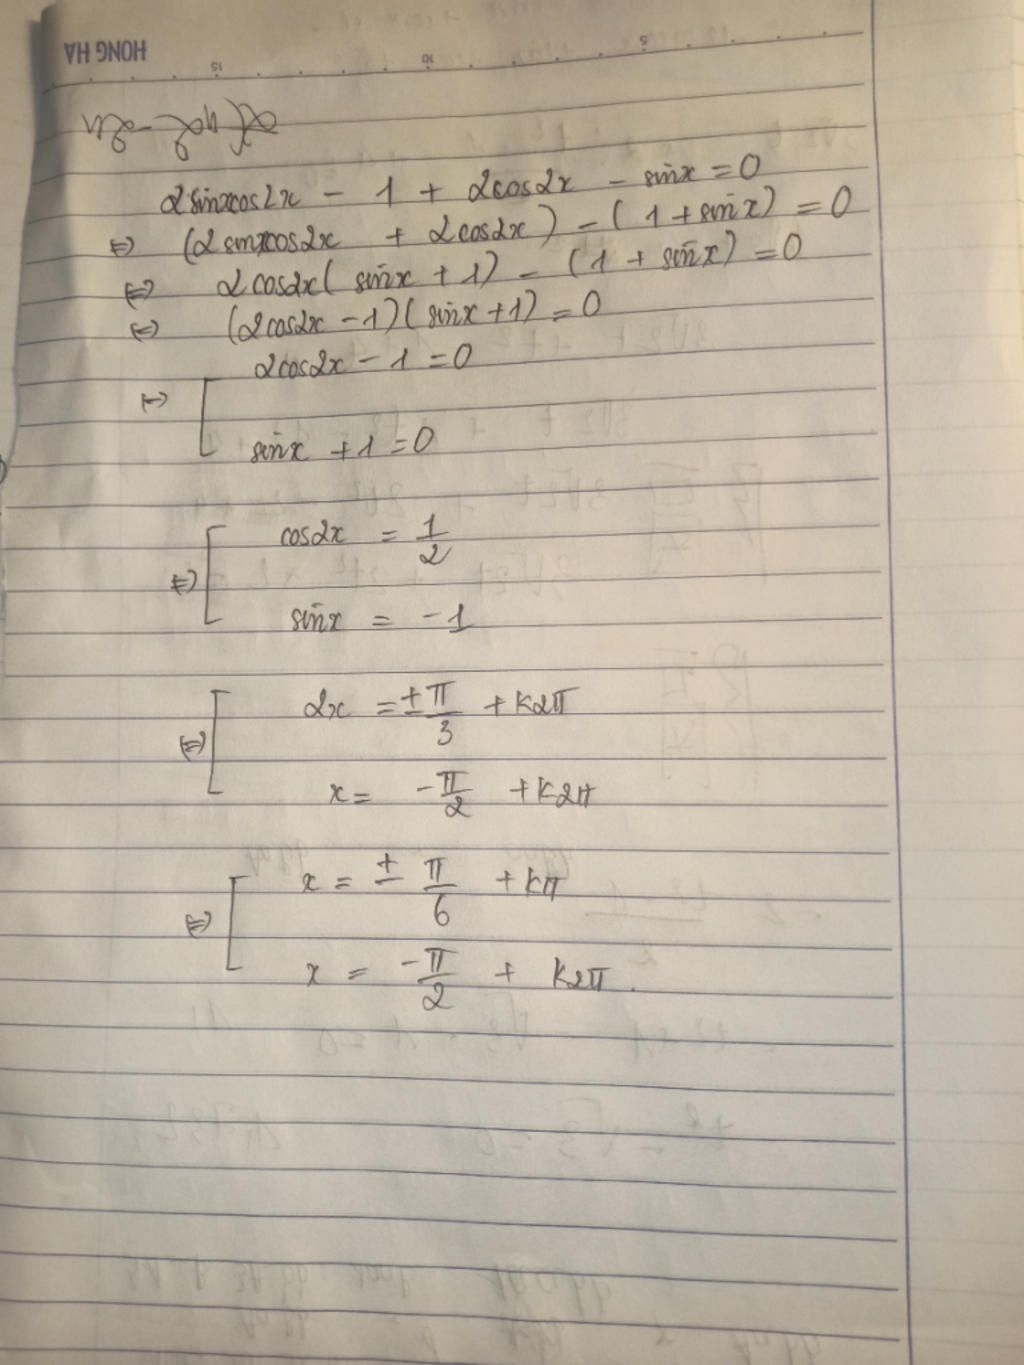 HONG HA
15 10 5
2sinxcos2x - 1 + 2cos2x - sinx = 0
⇔ (2sinxcos2x + 2cos2x) - (1 + sinx) = 0
⇔ 2cos2x(sinx + 1) - (1 + sinx) = 0
⇔ (2cos2x - 1)(sinx + 1) = 0
⇔ [ 2cos2x - 1 = 0
sinx + 1 = 0
⇔ [ cos2x = 1/2
sinx = -1
⇔ [ 2x = ± π/3 + k2π
x = -π/2 + k2π
⇔ [ x = ± π/6 + kπ
x = -π/2 + k2π.